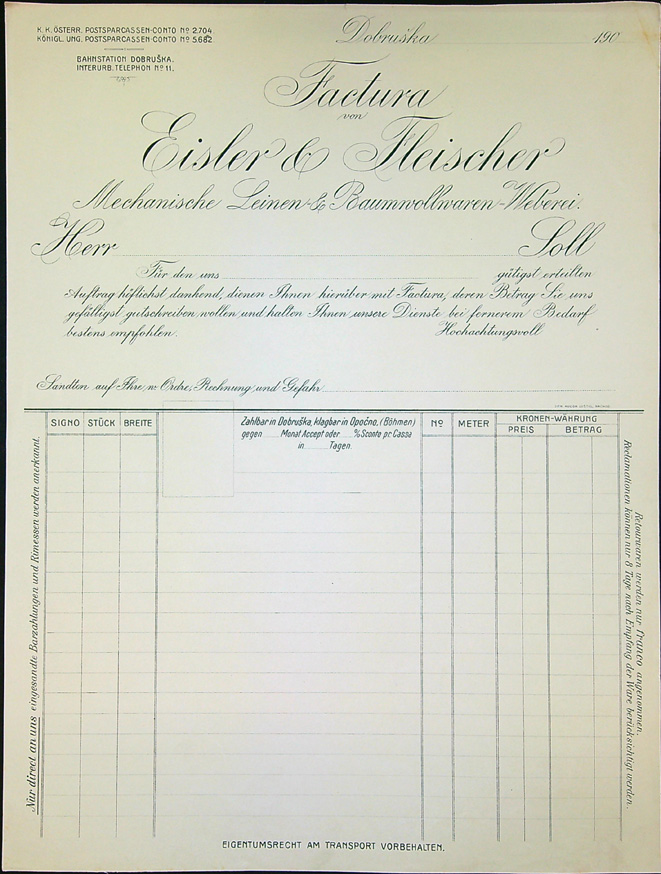 K. K. ÖSTERR. POSTSPARCASSEN-CONTO Nº 2.704.
KÖNIGL. UNG. POSTSPARCASSEN-CONTO Nº 5.682.
BAHNSTATION DOBRUŠKA.
INTERURB. TELEPHON Nº 11.
Dobruška 190
Factura
von
Eisler & Fleischer
Mechanische Leinen- & Baumwollwaren-Weberei.
Herr Soll
Für den uns gütigst erteilten
Auftrag höflichst dankend, dienen Ihnen hierüber mit Factura, deren Betrag Sie uns
gefälligst gutschreiben wollen und halten Ihnen unsere Dienste bei fernerem Bedarf
bestens empfohlen. Hochachtungsvoll
Sandten auf Ihre w. Ordre, Rechnung und Gefahr
SIGNO STÜCK BREITE
Zahlbar in Dobruška, klagbar in Opočno, (Böhmen)
gegen Monat Accept oder % Sconto pr Cassa
in Tagen.
Nº METER
KRONEN-WÄHRUNG
PREIS BETRAG
Nur direct an uns eingesandte Barzahlungen und Rimessen werden anerkannt.
Retourwaren werden nur Franco angenommen.
Reclamationen können nur 8 Tage nach Empfang der Ware berücksichtigt werden.
EIGENTUMSRECHT AM TRANSPORT VORBEHALTEN.